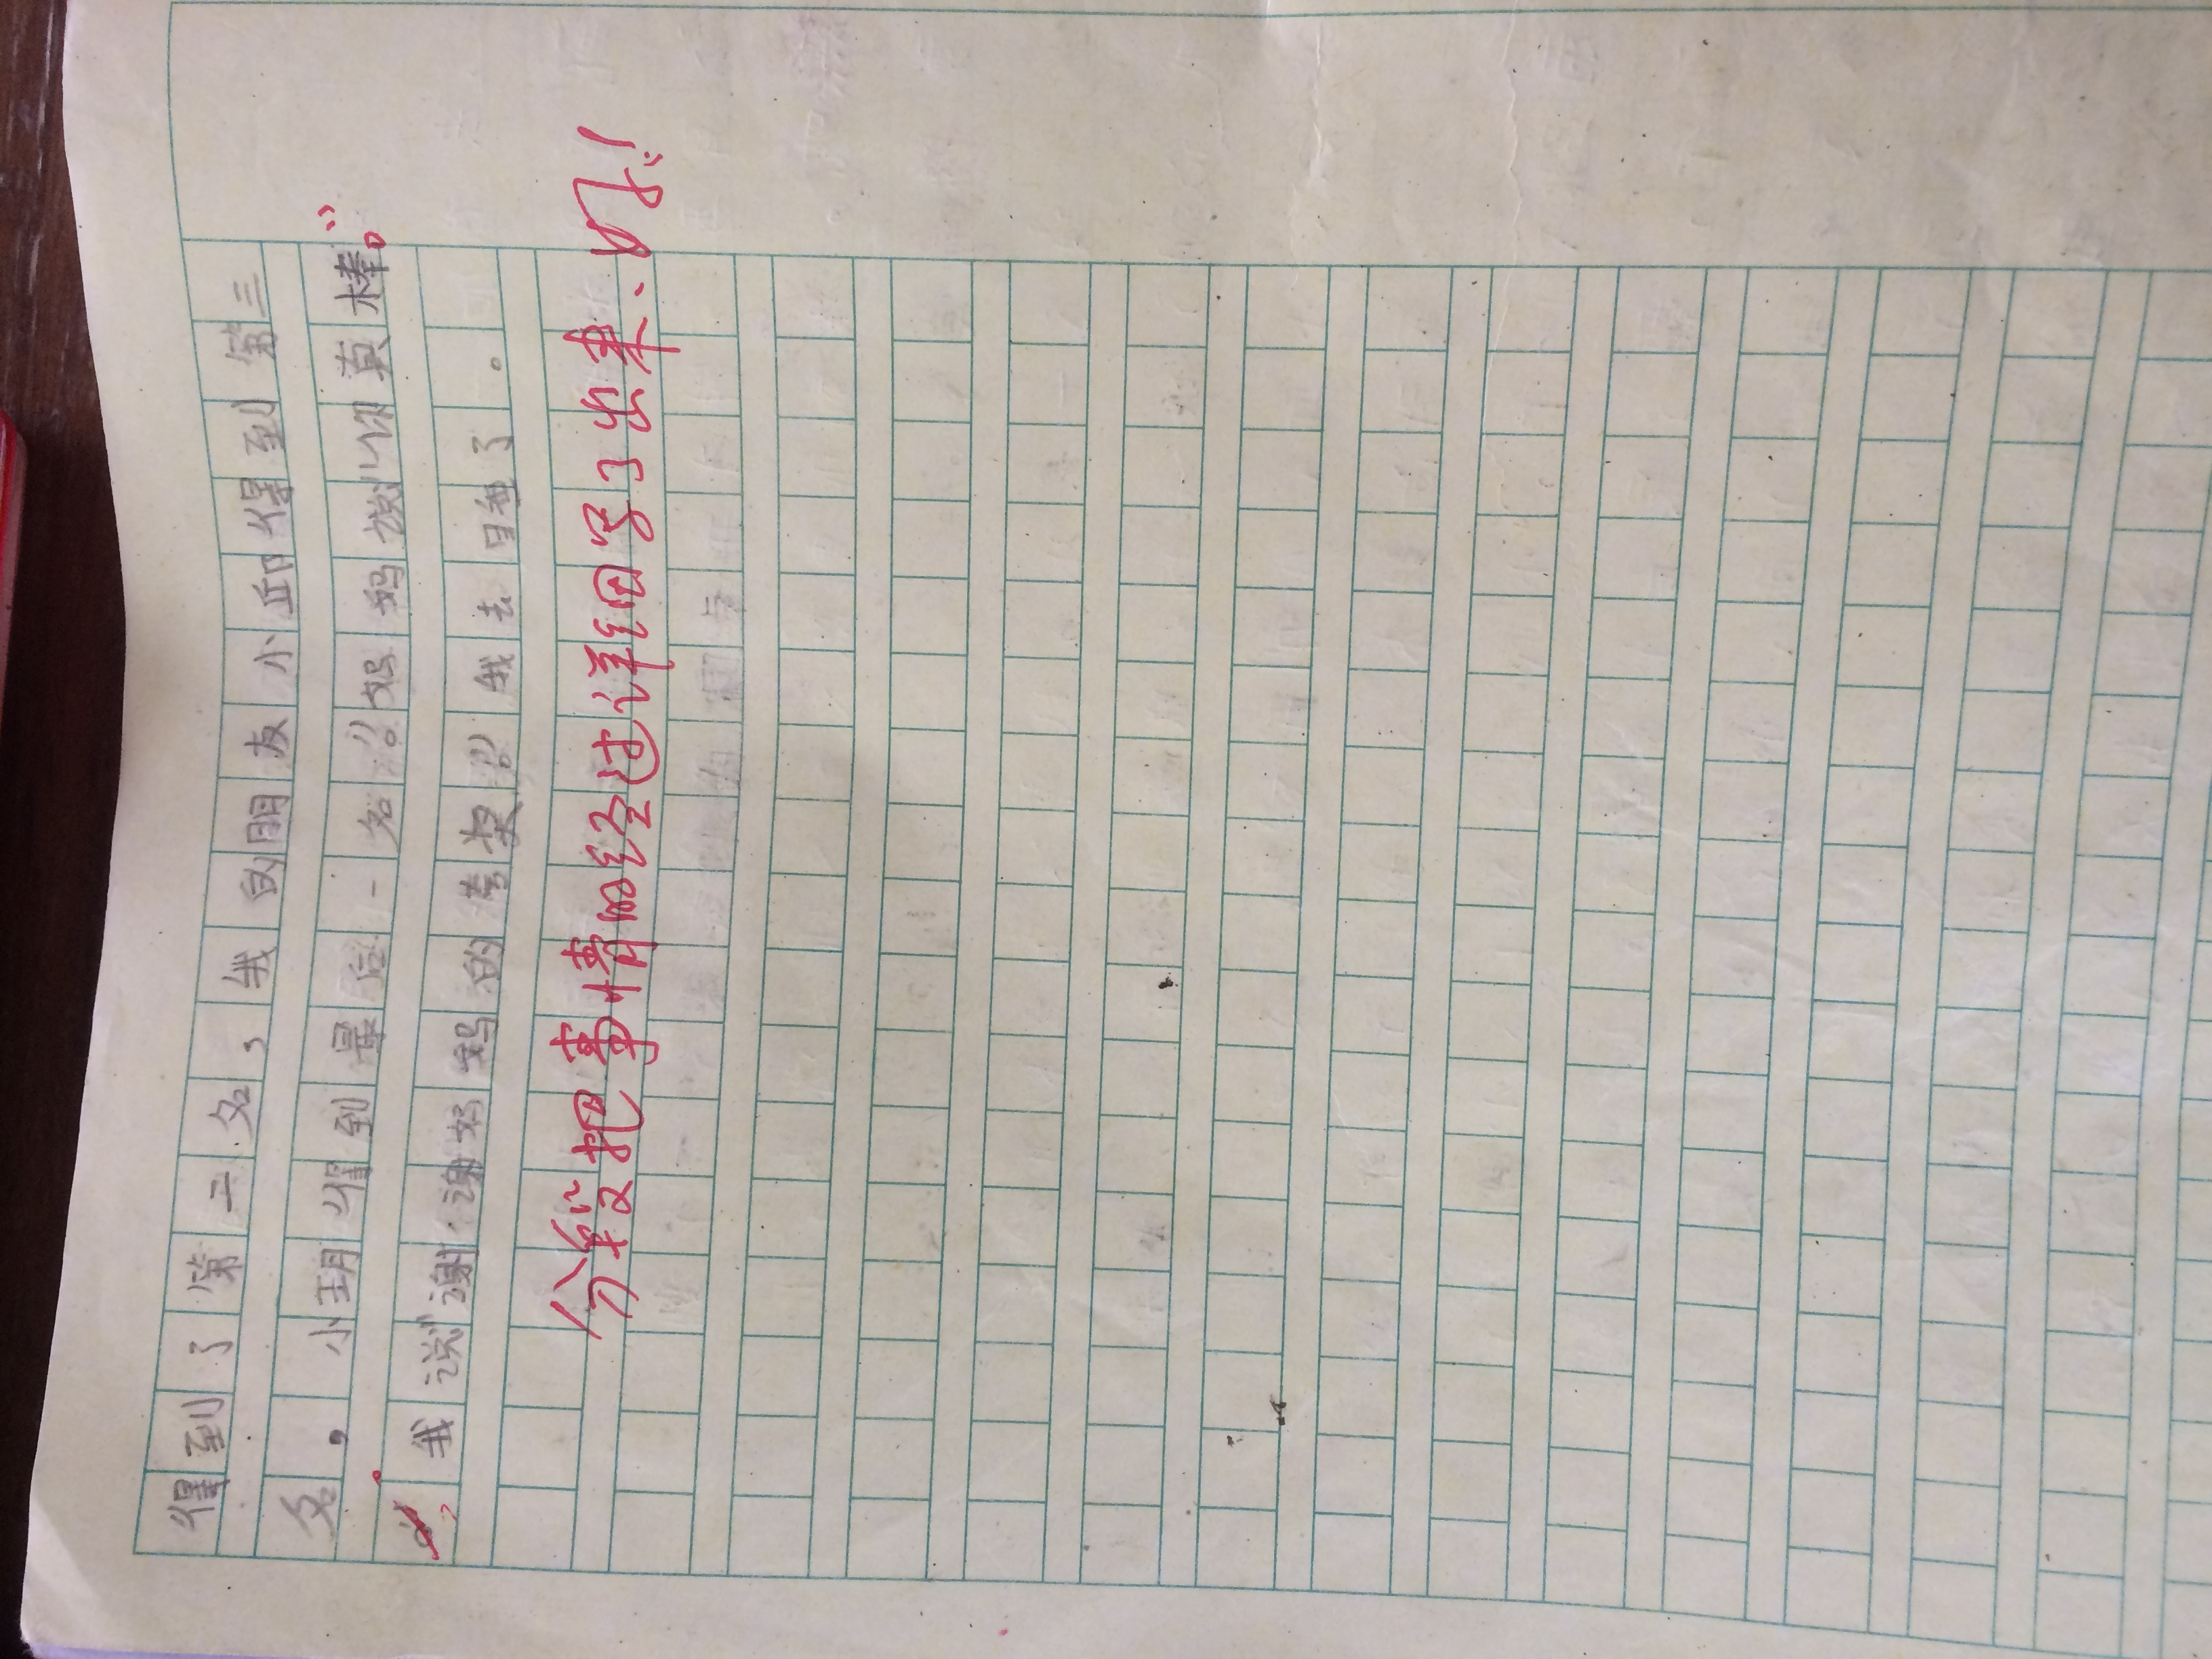 得到了第二名，我的朋友小邱得到第三
名，小玥得到最后一名。”妈妈说：“你真棒。”
我说：“谢谢妈妈的夸奖。”我去睡了。
分段把事情的经过详细写了出来、